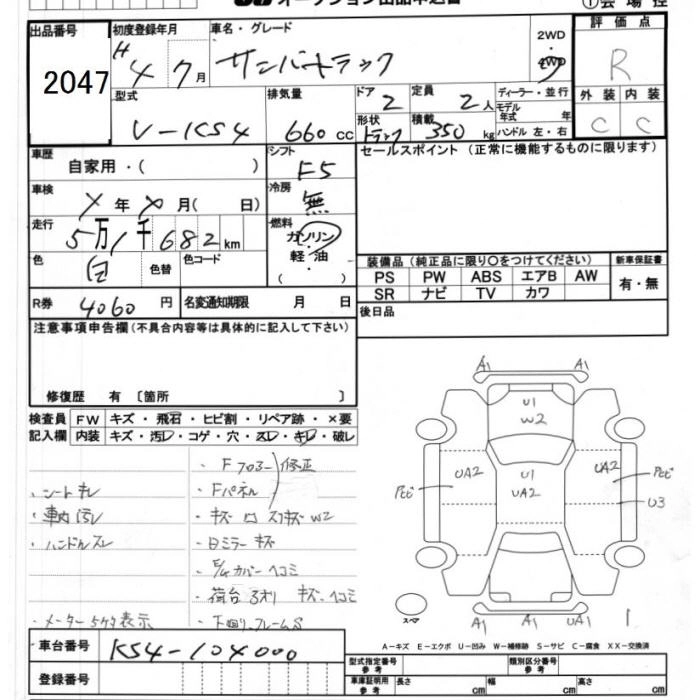 出品番号 初度登録年月 車名・グレード 2WD 評価点
2047 H 4年 7月 サンバートラック 4WD R
型式 排気量 ドア 2 定員 2人 ディーラー・並行 外装 内装
モデル年式 年
V-KS4 660cc 形状 トラック 積載 350kg ハンドル 左・右 C C
車歴 シフト F5 セールスポイント(正常に機能するものに限ります)
自家用・( )
車検 冷房 無
年 月( 日)
走行 燃料
5万1千682km ガソリン
色 白 色替 色コード 軽油
( )
装備品(純正品に限り〇をつけてください) 新車保証書
PS PW ABS エアB AW 有・無
SR ナビ TV カワ
R券 4060円 名変通知期限 月 日 後日品
注意事項申告欄(不具合内容等は具体的に記入して下さい)
修復歴 有〔箇所 〕
検査員 FW キズ・飛石・ヒビ割・リペア跡・×要
記入欄 内装 キズ・汚レ・コゲ・穴・スレ・キレ・破レ
・Fフロアー 修正
・シートキレ ・Fパネル
・車内汚レ ・キズ
・ハンドルスレ ・Bミラーキズ
・E/Gカバーヘコミ
・荷台 キズ、ヘコミ
・メーター5ケタ表示 ・下廻り、フレームS
A1 A1
U1
W2
UA2 U1 UA2
UA2
U3
スペア A1 A1 UA1
A-キズ E-エクボ U-凹み W-補修跡 S-サビ C-腐食 XX-交換済
車台番号 KS4-104000
登録番号
型式指定番号 参考 類別区分番号 参考
車庫証明用 参考 長さ cm 幅 cm 高さ cm